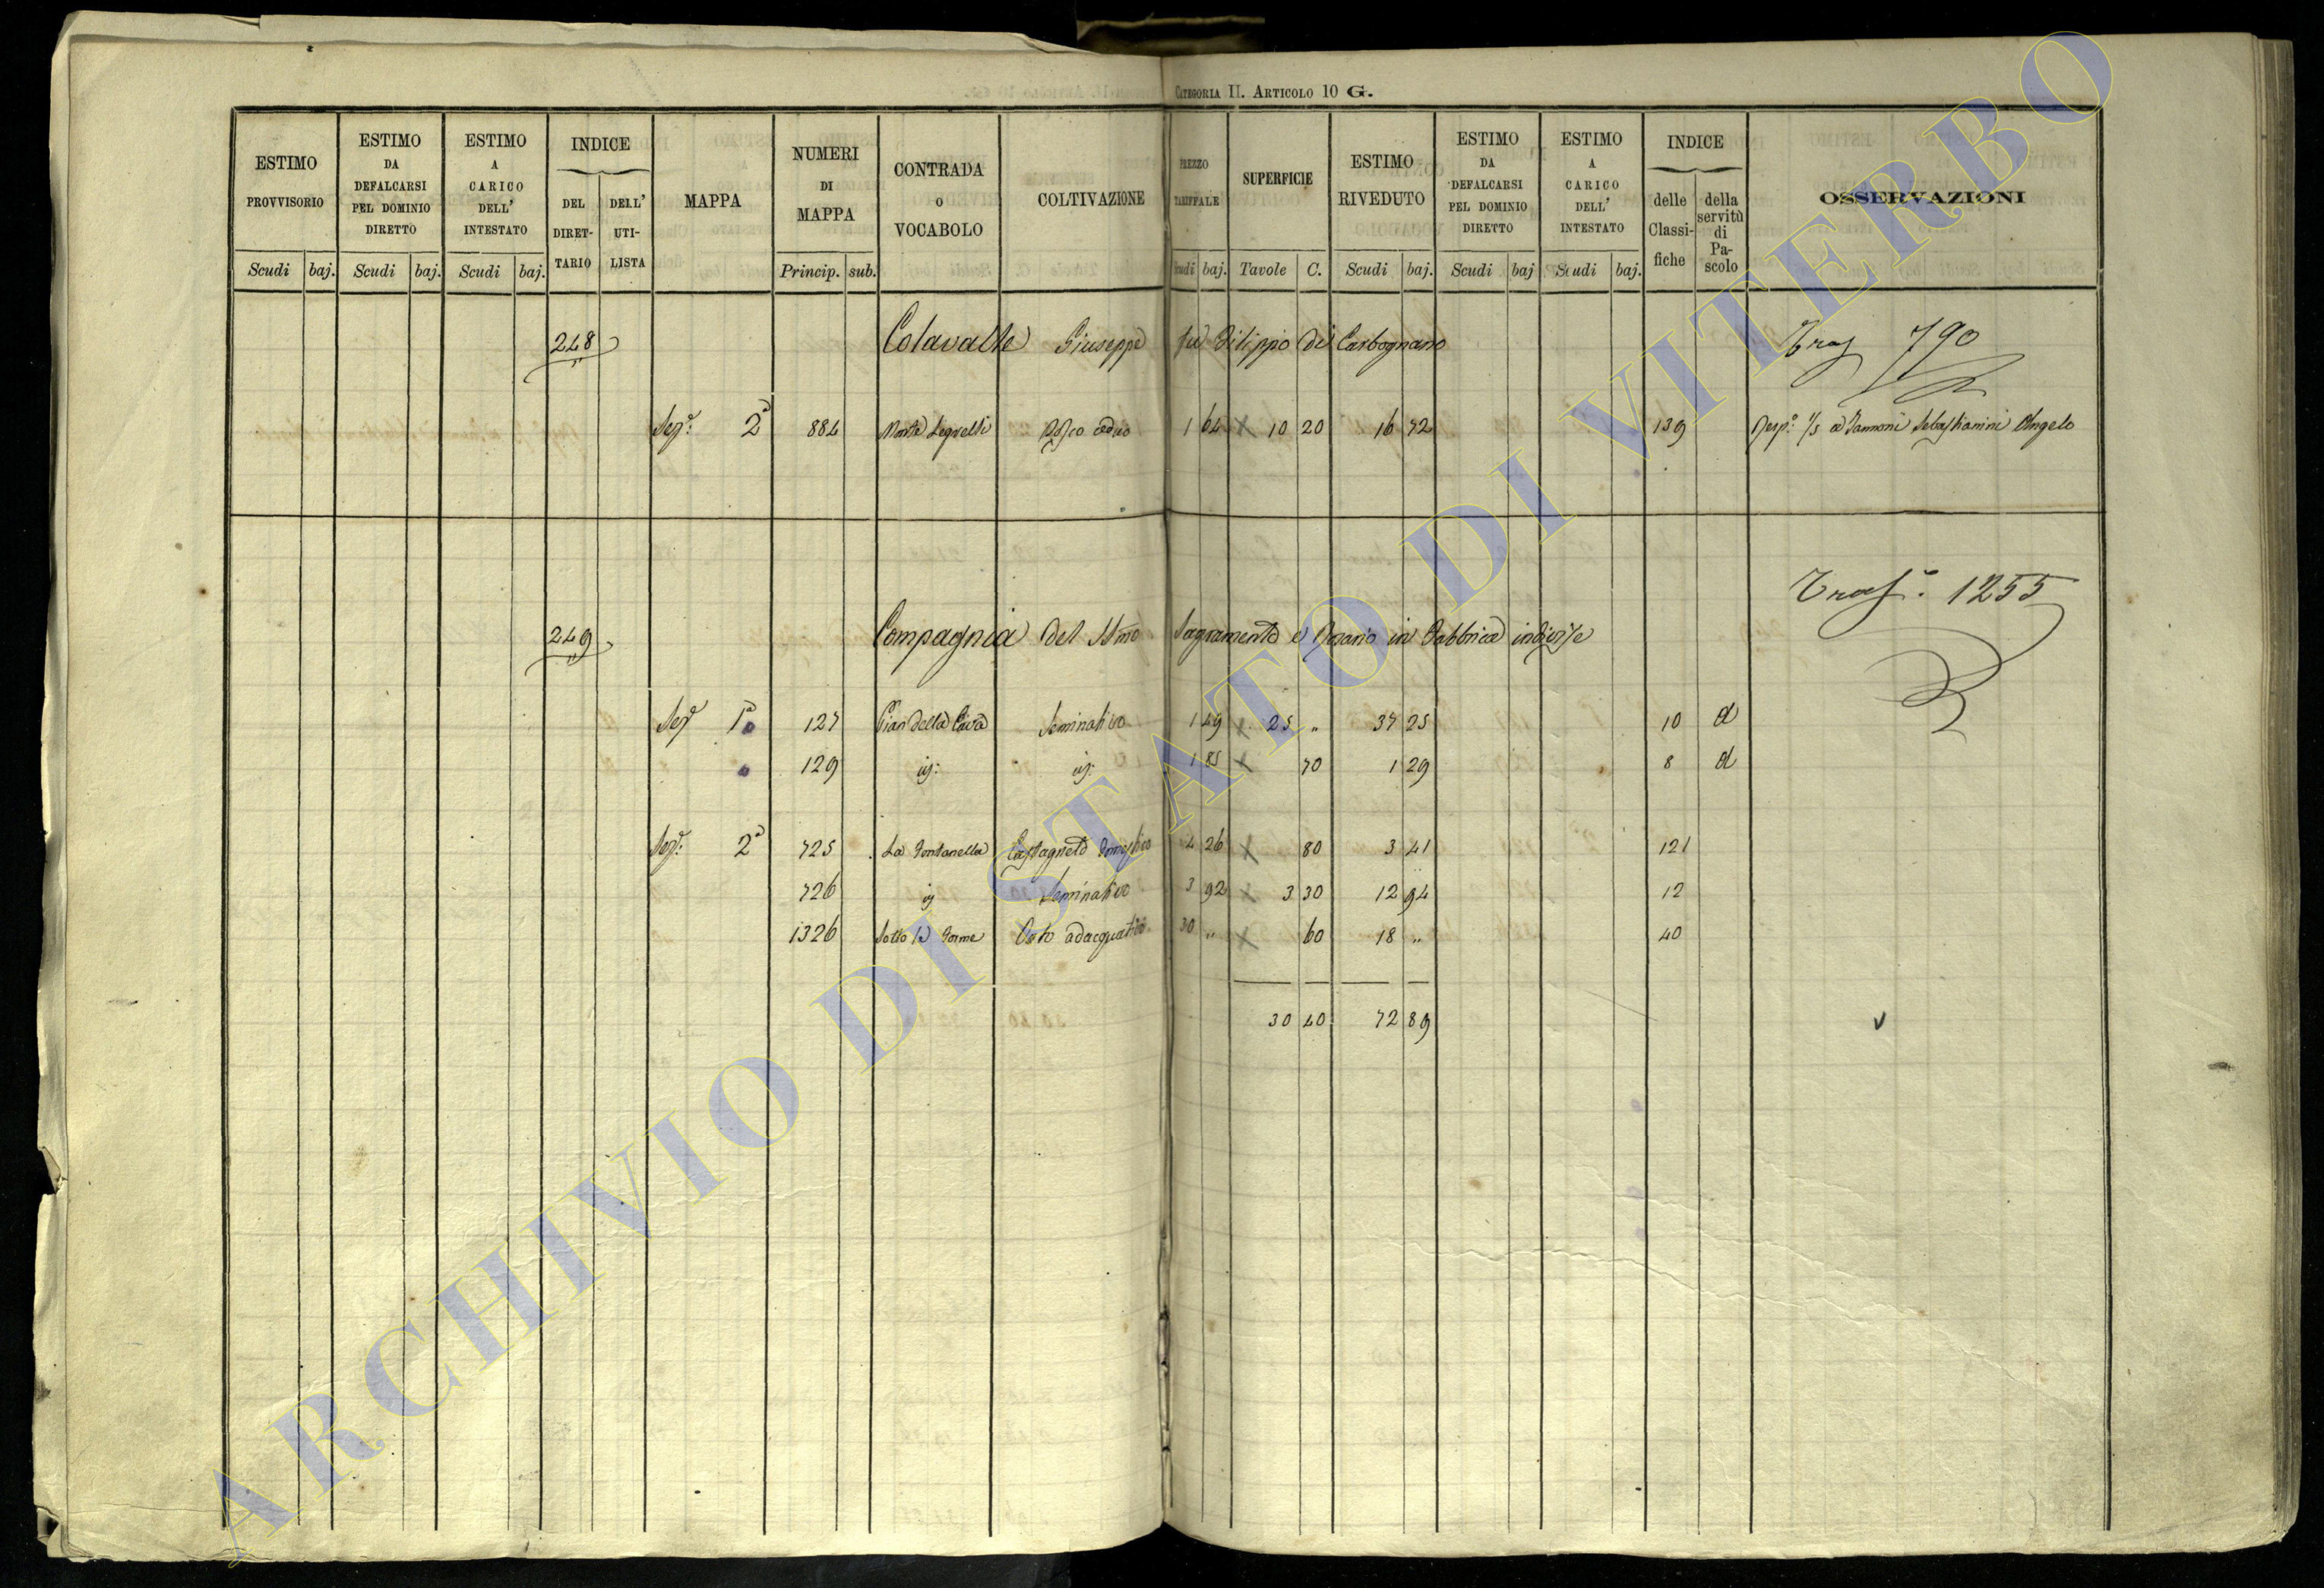 CATEGORIA II. ARTICOLO 10 G.
ESTIMO PROVVISORIO | ESTIMO DA DEFALCARSI PEL DOMINIO DIRETTO | ESTIMO A CARICO DELL' INTESTATO | INDICE | MAPPA | NUMERI DI MAPPA | CONTRADA O VOCABOLO | COLTIVAZIONE | PREZZO TARIFFALE | SUPERFICIE | ESTIMO RIVEDUTO | ESTIMO DA DEFALCARSI PEL DOMINIO DIRETTO | ESTIMO A CARICO DELL' INTESTATO | INDICE | OSSERVAZIONI
DEL DIRET-TARIO | DELL' UTI-LISTA | delle Classi-fiche | della servitù di Pa-scolo
Scudi | baj. | Scudi | baj. | Scudi | baj. | Princip. | sub. | Scudi | baj. | Tavole | C. | Scudi | baj. | Scudi | baj | Scudi | baj.
248 Colavalle Giuseppe fu Filippo di Carbognano Tras 790
Sez.e 2a 884 Monte Bosco ceduo 1 64 10 20 16 72 139 Resp.e 1/5 a Jannoni Sebastianini Angelo
249 Compagnia del SSmo Sagramento e Rosario in Fabbrica indivise Trasf. 1255
Sez.e 1a 127 Pian della Cava Seminativo 1 49 25 „ 37 25 10 d
129 ig: ig: 1 85 70 1 29 8 d
Sez.e 2a 725 La Fontanella Castagneto domestico 4 26 80 3 41 121
726 ig Seminativo 3 92 3 30 12 94 12
1326 Sotto le Forme Orto adacquativo 30 „ 60 18 „ 40
30 40 72 89
ARCHIVIO DI STATO DI VITERBO